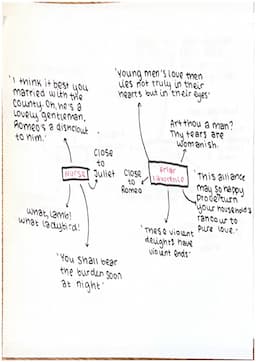 'I think it best you
married with the
County. Oh, he's a
lovely gentleman.
Romeo's a dishclout
to him.'
NURSE
Close
to
Juliet
What, lamb!
What ladybird!
'You shall bear
the burden soon
at night'
'Young men's love then
lies not truly in their
hearts but in their eyes'
Art thou a man?
Thy tears are
womanish.
Friar
Lawrence
Close
to
Romeo
'This alliance
may so happy
prove/turn
your households
rancour to
pure love.'
'These violent
delights have
violent ends'